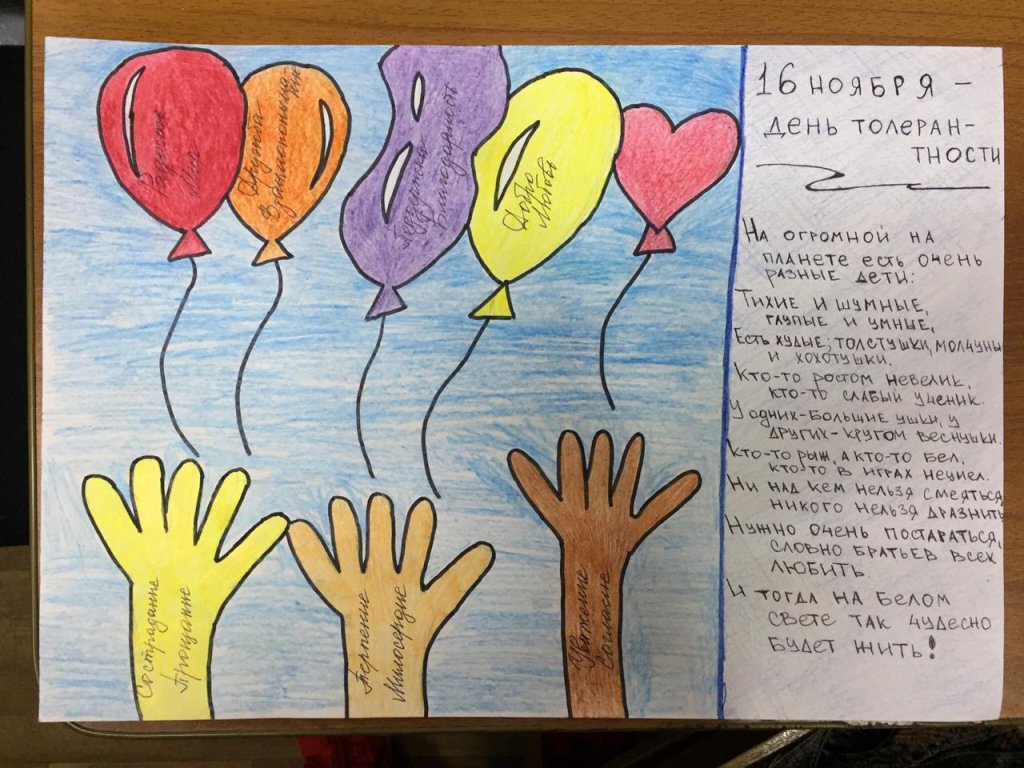 16 НОЯБРЯ –
ДЕНЬ ТОЛЕРАН-
ТНОСТИ
НА ОГРОМНОЙ НА
ПЛАНЕТЕ ЕСТЬ ОЧЕНЬ
РАЗНЫЕ ДЕТИ:
ТИХИЕ И ШУМНЫЕ,
ГЛУПЫЕ И УМНЫЕ,
ЕСТЬ ХУДЫЕ, ТОЛСТУШКИ, МОЛЧУНЫ
И ХОХОТУШКИ.
КТО-ТО РОСТОМ НЕВЕЛИК,
КТО-ТО СЛАБЫЙ УЧЕНИК.
У ОДНИХ-БОЛЬШИЕ УШКИ, У
ДРУГИХ-КРУГОМ ВЕСНУШКИ.
КТО-ТО РЫЖ, А КТО-ТО БЕЛ,
КТО-ТО В ИГРАХ НЕУМЕЛ.
НИ НАД КЕМ НЕЛЬЗЯ СМЕЯТЬСЯ,
НИКОГО НЕЛЬЗЯ ДРАЗНИТЬ
НУЖНО ОЧЕНЬ ПОСТАРАТЬСЯ,
СЛОВНО БРАТЬЕВ ВСЕХ
ЛЮБИТЬ.
И ТОГДА НА БЕЛОМ
СВЕТЕ ТАК ЧУДЕСНО
БУДЕТ ЖИТЬ!
Поддержка
Благодарность
Добро
Любовь
Сострадание
Прощание
Терпение
Милосердие
Уважение
Согласие